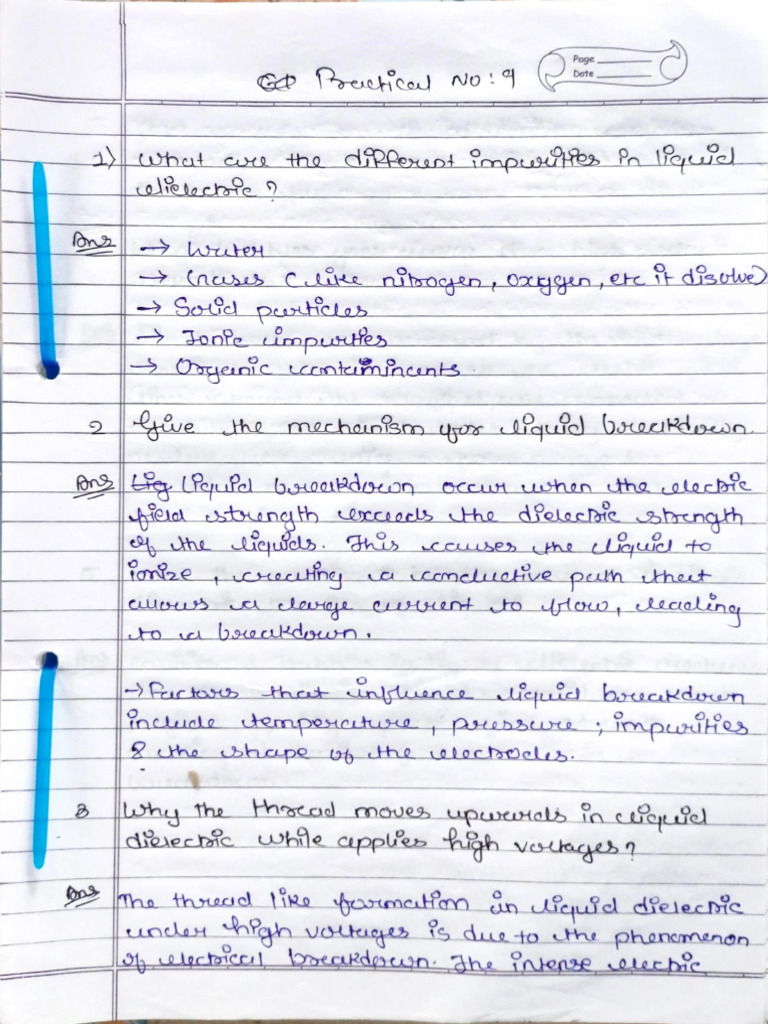 Practical NO: 9
Page
Date
1) What are the different impurities in liquid
dielectric?
Ans → Water
→ Gases (like nitrogen, oxygen, etc if disolve)
→ Solid particles
→ Ionic impurties
→ Organic contamincants.
2 Give the mechanism for liquid breakdown.
Ans Liq Liquid breakdown occur when the electric
field strength exceeds the dielectric strength
of the liquids. This causes the liquid to
ionize, creating a conductive path that
allows a large current to flow, leading
to a breakdown.
→ Factors that influence liquid breakdown
include temperature, pressure; impurities
& the shape of the electrodes.
3 Why the thread moves upwards in liquid
dielectric while applies high voltages?
Ans The thread like formation in liquid dielectric
under high voltages is due to the phenomenon
of electrical breakdown. The intense electric